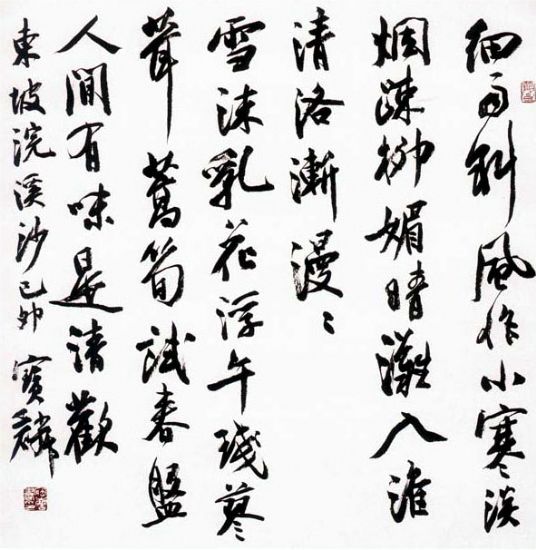 細雨斜風作小寒淡
烟疎柳媚晴灘入淮
清洛漸漫〻
雪沫乳花浮午琖蓼
茸蒿筍試春盤
人間有味是清歡
東坡浣溪沙己卯寶麟